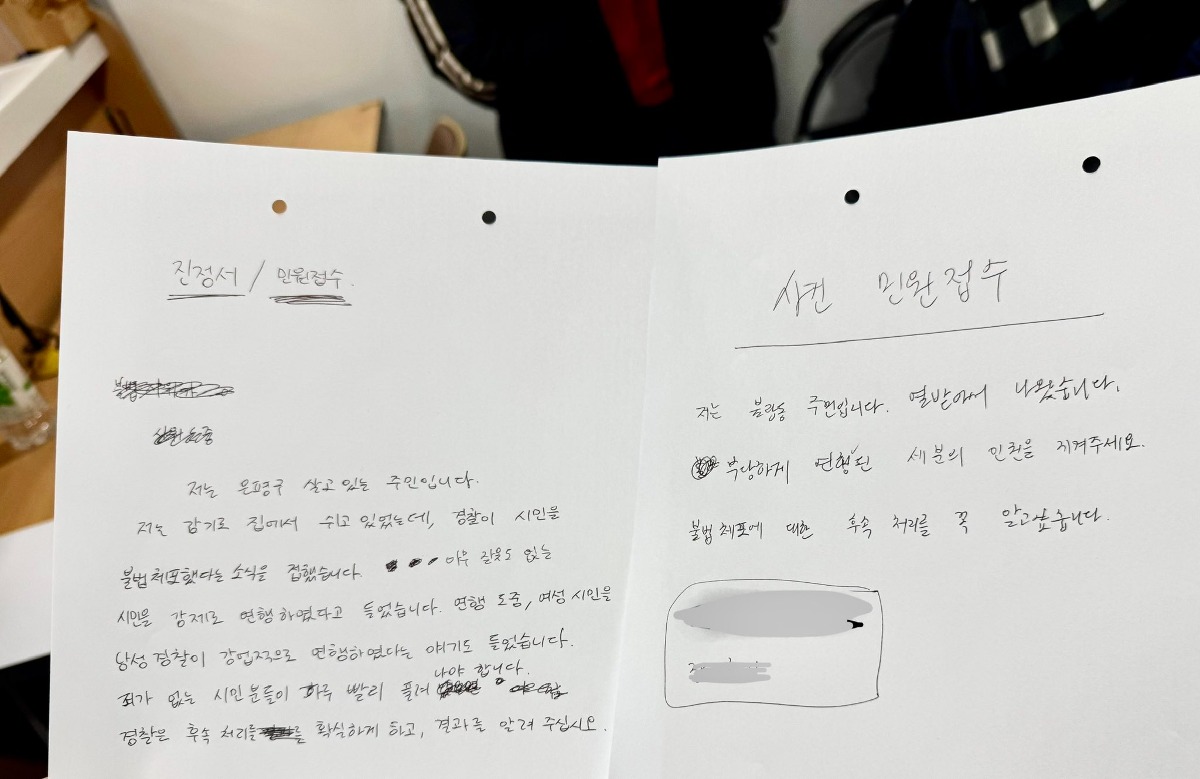 진정서 / 민원접수.
불법
저는 은평구 살고 있는 주민입니다.
저는 감기로 집에서 쉬고 있었는데, 경찰이 시민을
불법체포했다는 소식을 접했습니다. 아무 잘못도 없는
시민을 강제로 연행하였다고 들었습니다. 연행 도중, 여성 시민을
남성 경찰이 강압적으로 연행하였다는 얘기도 들었습니다.
나야 합니다.
죄가 없는 시민분들이 하루 빨리 풀려
경찰은 후속 처리를 확실하게 하고, 결과를 알려 주십시오.
사건 민원접수
저는 불광동 주민입니다. 열받아서 나왔습니다.
부당하게 연행된 세 분의 인권을 지켜주세요.
불법체포에 대한 후속 처리를 꼭 알고싶습니다.